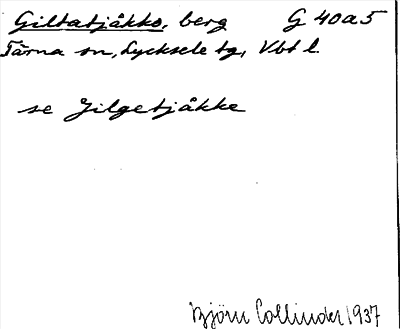 Giltatjåkko, berg G 40a5
Tärna sn, Lycksele tg, Vbt l.
se Jilgetjåkke
Björn Collinder 1937